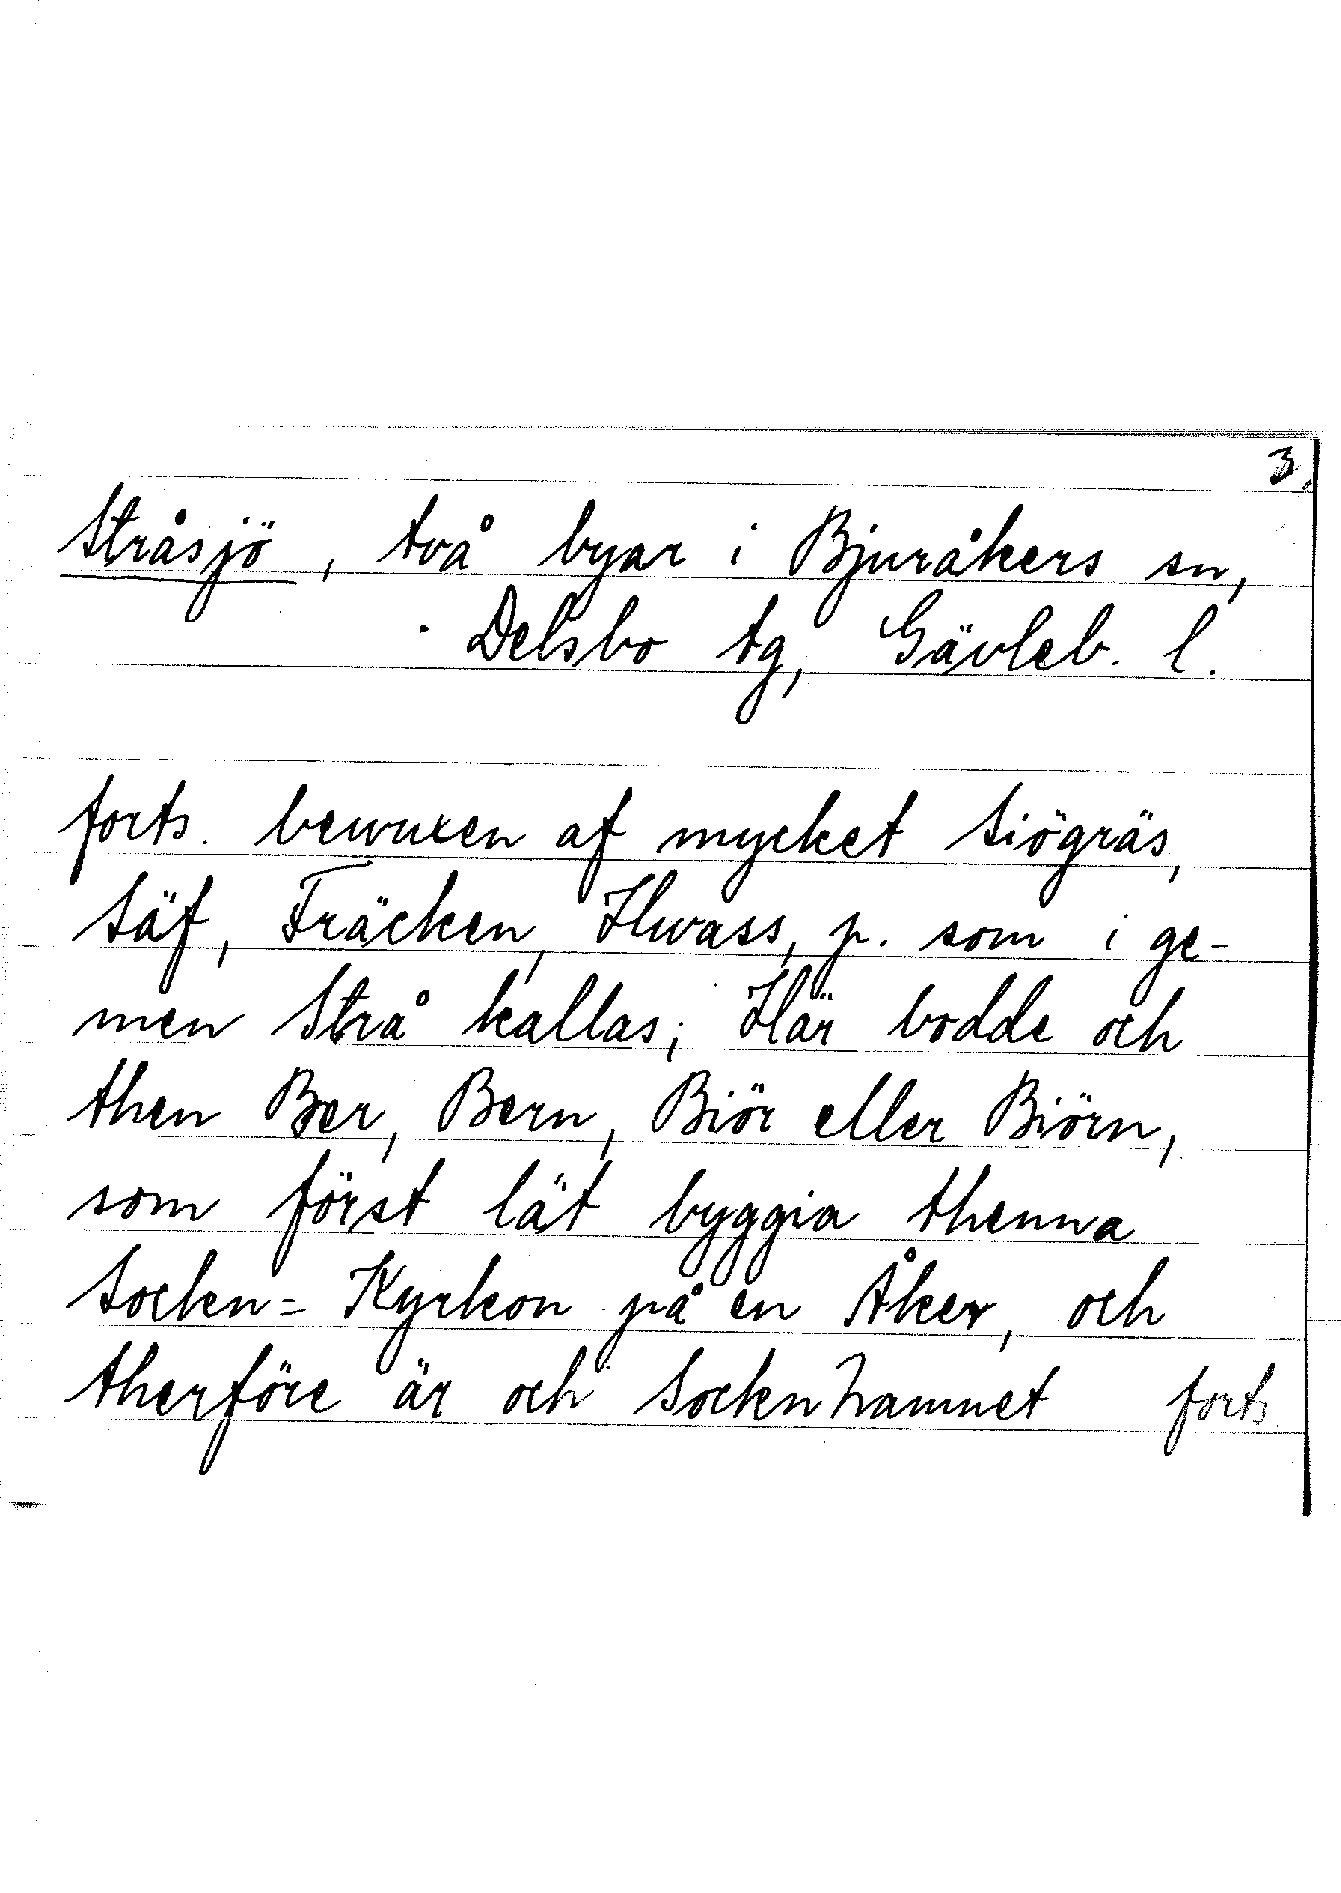 3.
Stråsjö, två byar i Bjuråkers sn,
Delsbo tg, Gävleb. l.
forts. bewuxen af mycket Siögräs,
Säf, Fräcken, Hwass, p. som i ge-
men Strå kallas; Här bodde och
then Ber, Bern, Biör eller Biörn,
som först lät byggia thenna
Socken= Kyrkon på en Åker, och
therföre är och Sockn hamnet forts